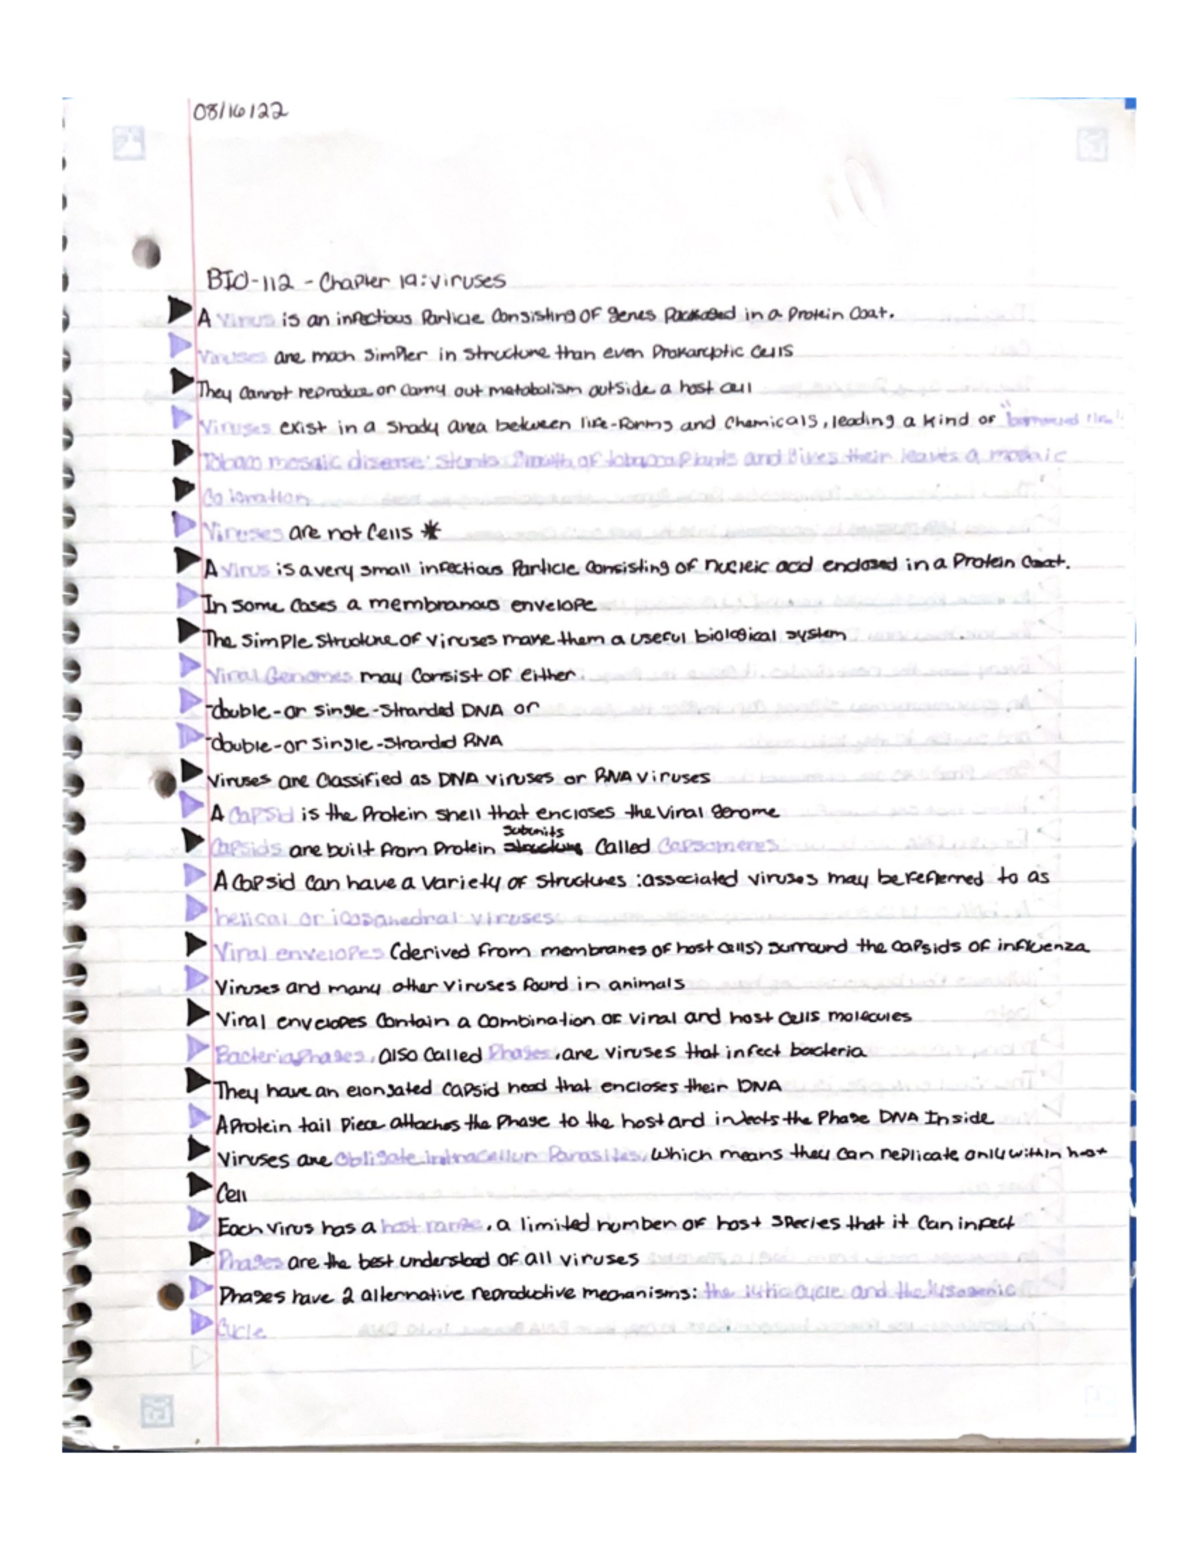 08/16/22
BIO-112 - Chapter 19: Viruses
A Virus is an infectious Particle Consisting of genes Packaged in a Protein Coat.
Viruses are much Simpler in Structure than even Prokaryotic Cells
They Cannot reproduce or Carry out metabolism outside a host cell
Viruses exist in a Shady area between life-forms and Chemicals, leading a kind of "borrowed life"
Tobacco mosaic disease: stunts Growth of tobacco Plants and Gives their leaves a mosaic
Coloration
Viruses are not Cells *
A Virus is a very small infectious Particle Consisting of nucleic acid enclosed in a Protein Coat.
In Some Cases a membranous envelope
The Simple Structure of viruses make them a useful biological system
Viral Genomes may Consist of either
-double-or single-Stranded DNA or
-double-or single-Stranded RNA
Viruses are Classified as DNA viruses or RNA viruses
A Capsid is the Protein shell that encloses the Viral genome
subunits
Capsids are built from Protein structure Called Capsomeres
A Capsid Can have a Variety of Structures: associated viruses may be referred to as
helical or icosahedral viruses
Viral envelopes (derived from membranes of host cells) Surround the Capsids of influenza
Viruses and many other viruses found in animals
Viral envelopes Contain a Combination of viral and host Cells molecules
Bacteriaphages, also Called Phages, are viruses that infect bacteria
They have an elongated Capsid head that encloses their DNA
A Protein tail Piece attaches the Phage to the host and injects the Phage DNA Inside
Viruses are Obligate intracellur Parasites, Which means they Can replicate only within host
Cell
Each Virus has a host range, a limited number of host Species that it Can infect
Phages are the best understood of all viruses
Phages have 2 alternative reproductive mechanisms: the lytic cycle and the lysogenic
Cycle